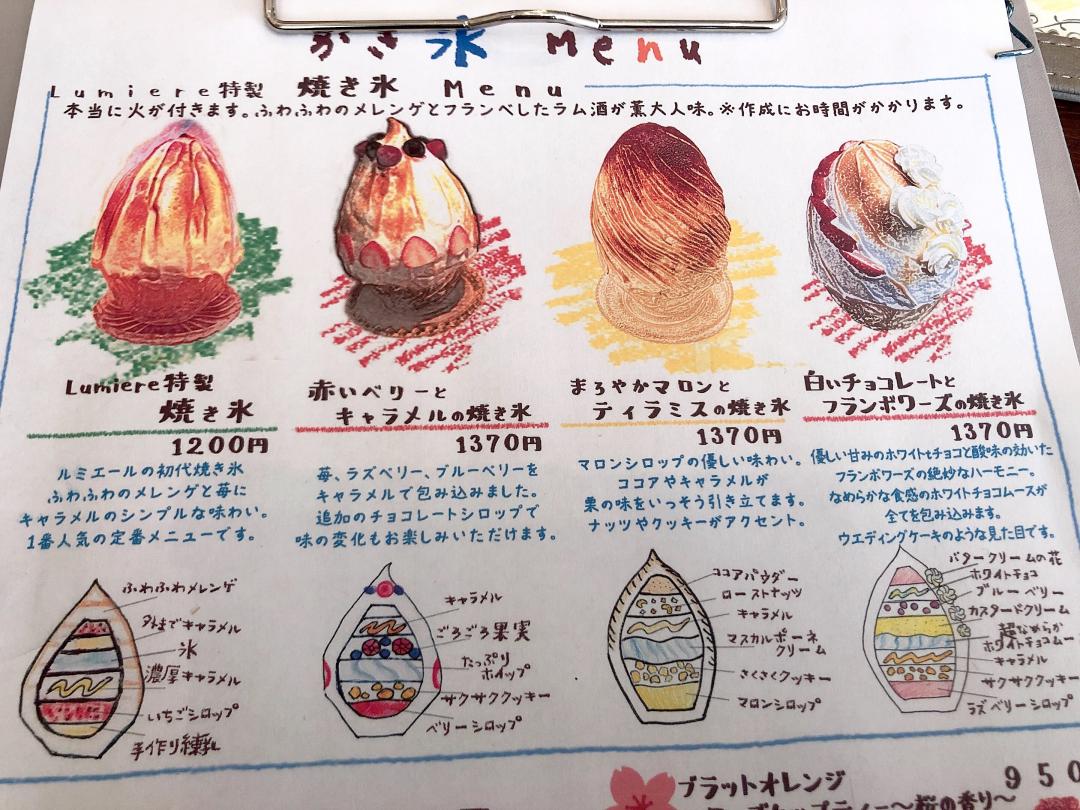 かき氷 Menu
Lumiere特製 焼き氷 Menu
本当に火が付きます。ふわふわのメレンゲとフランベしたラム酒が薫大人味。※作成にお時間がかかります。
Lumiere特製
焼き氷
1200円
ルミエールの初代焼き氷
ふわふわのメレンゲと苺に
キャラメルのシンプルな味わい。
1番人気の定番メニューです。
ふわふわメレンゲ
キャラメル
氷
濃厚キャラメル
いちごシロップ
手作り練乳
赤いベリーと
キャラメルの焼き氷
1370円
苺、ラズベリー、ブルーベリーを
キャラメルで包み込みました。
追加のチョコレートシロップで
味の変化もお楽しみいただけます。
キャラメル
ごろごろ果実
たっぷり
ホイップ
サクサククッキー
ベリーシロップ
まろやかマロンと
ティラミスの焼き氷
1370円
マロンシロップの優しい味わい。
ココアやキャラメルが
栗の味をいっそう引き立てます。
ナッツやクッキーがアクセント。
ココアパウダー
ローストナッツ
キャラメル
マスカルポーネ
クリーム
さくさくクッキー
マロンシロップ
白いチョコレートと
フランボワーズの焼き氷
1370円
優しい甘みのホワイトチョコと酸味の効いた
フランボワーズの絶妙なハーモニー。
なめらかな食感のホワイトチョコムースが
全てを包み込みます。
ウエディングケーキのような見た目です。
バタークリームの花
ホワイトチョコ
ブルーベリー
カスタードクリーム
超なめらか
ホワイトチョコムー
キャラメル
サクサククッキー
ラズベリーシロップ
ブラットオレンジ
950
～桜の香り～